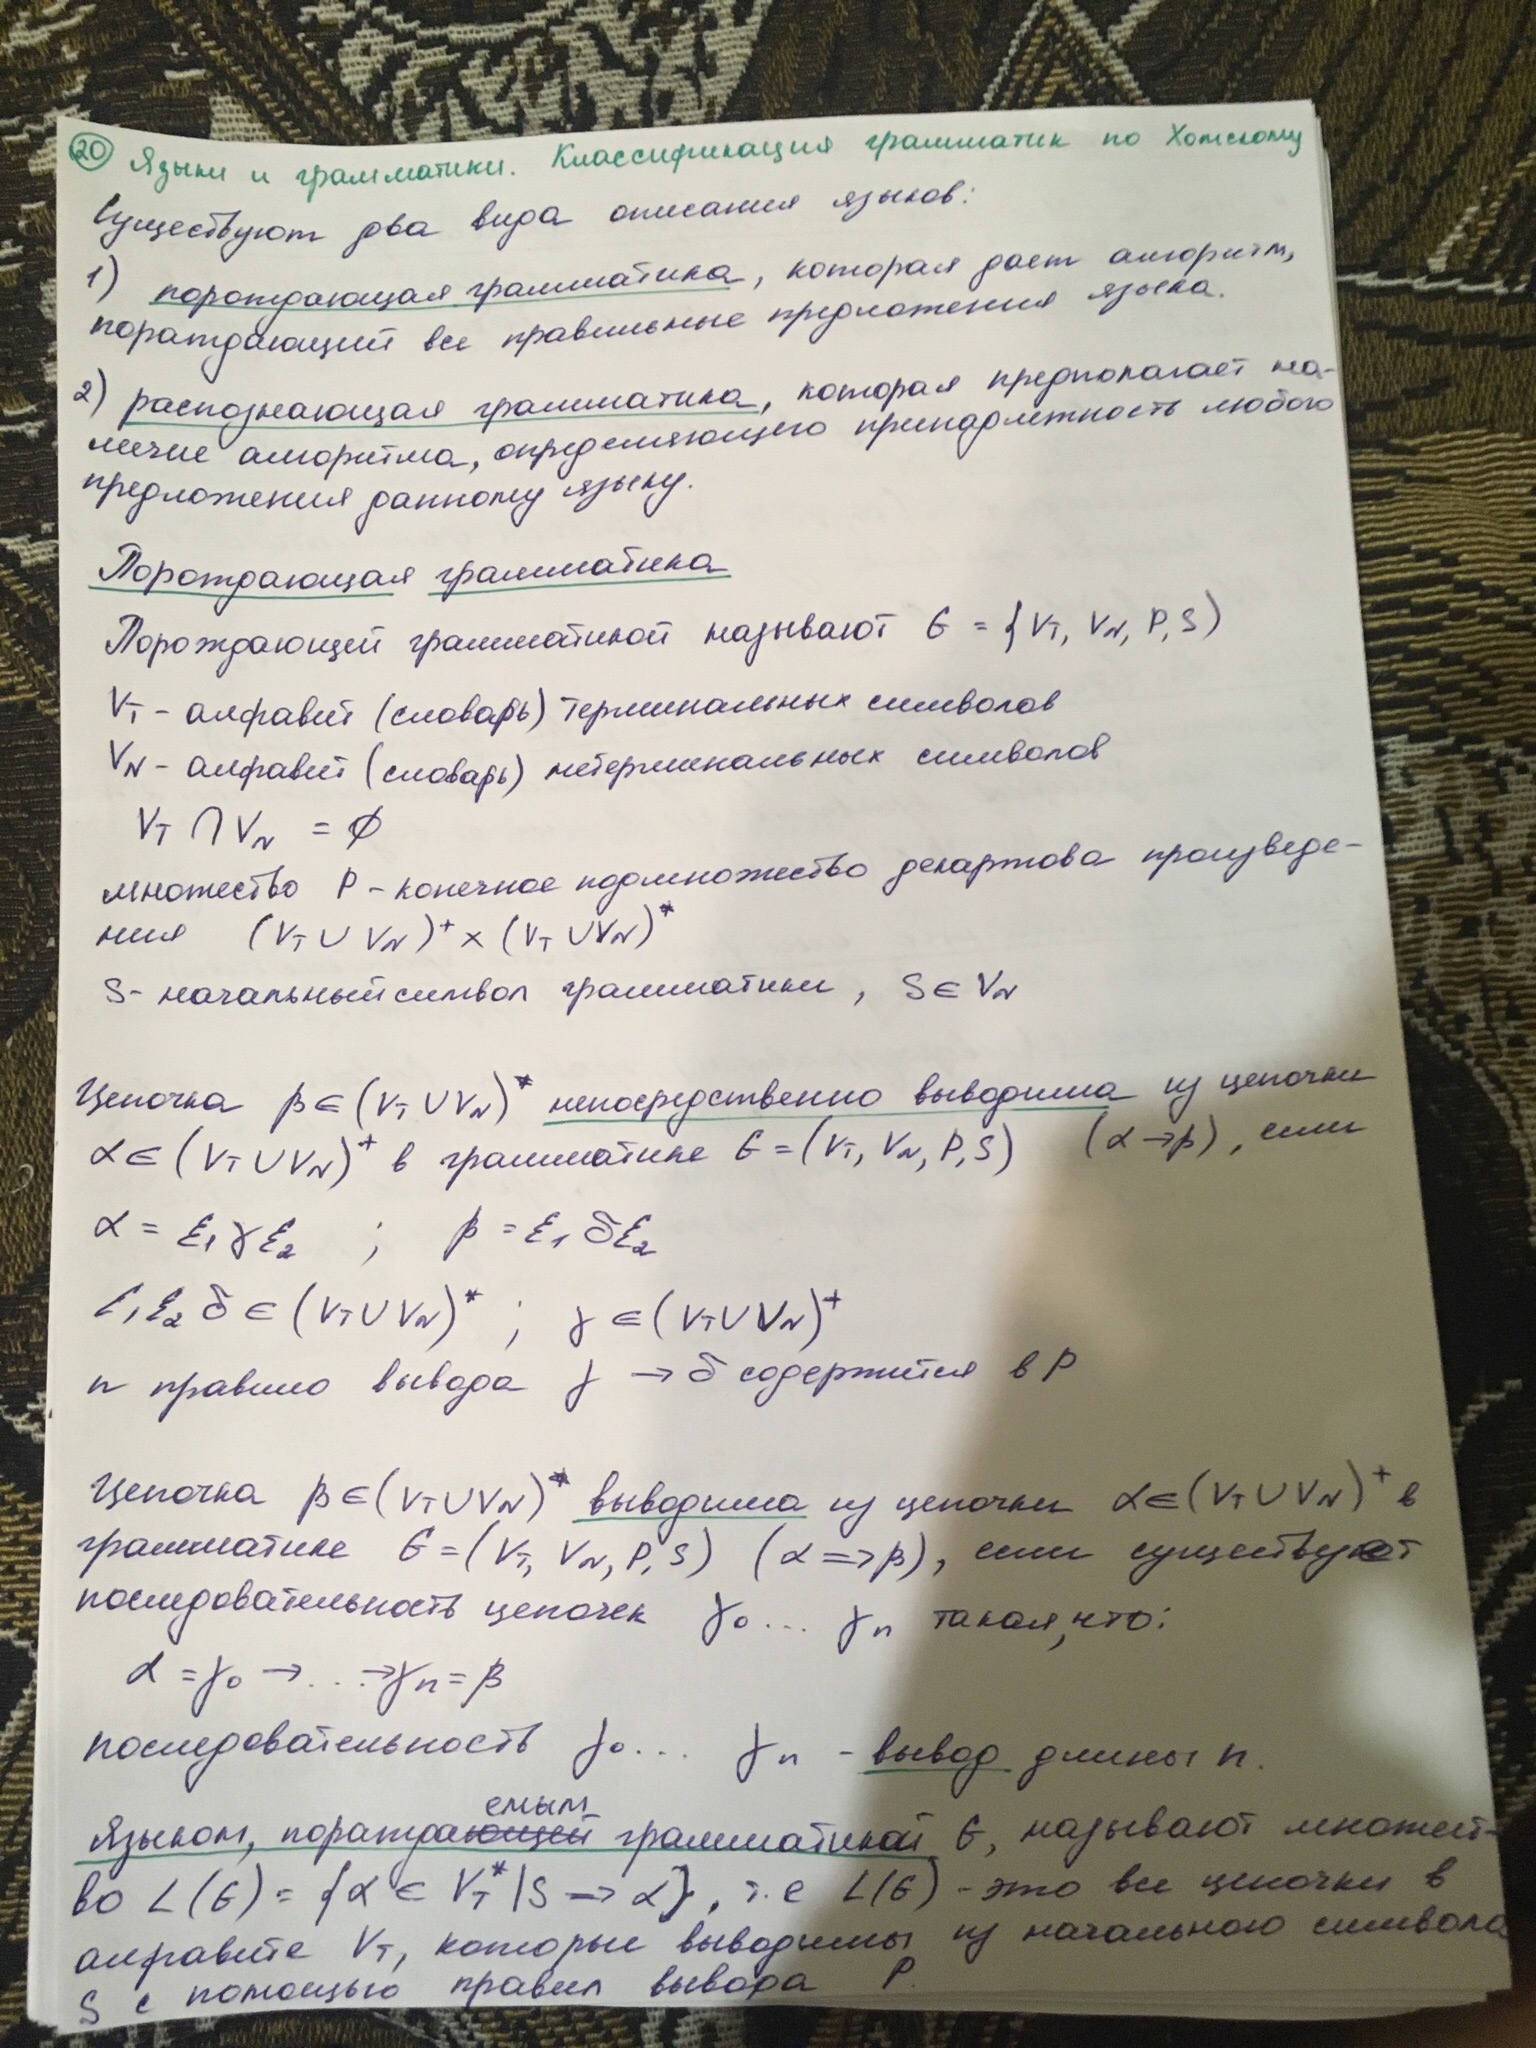 20 Языки и грамматики. Классификация грамматик по Хомскому
Существуют два вида описания языков:
1) порождающая грамматика, которая дает алгоритм,
пораждающий все правильные предложения языка.
2) распознающая грамматика, которая предполагает на-
личие алгоритма, определяющего принадлежность любого
предложения данному языку.
Порождающая грамматика
Порождающей грамматикой называют G = {VT, VN, P, S)
VT - алфавит (словарь) терминальных символов
VN - алфавит (словарь) нетерминальных символов
VT ∩ VN = ∅
множество P - конечное подмножество декартова произведе-
ния (VT ∪ VN)⁺ × (VT ∪ VN)*
S - начальный символ грамматики, S ∈ VN
Цепочка β ∈ (VT ∪ VN)* непосредственно выводима из цепочки
α ∈ (VT ∪ VN)⁺ в грамматике G = (VT, VN, P, S) (α → β), если
α = ξ₁γξ₂ ; β = ξ₁δξ₂
ξ₁ξ₂δ ∈ (VT ∪ VN)* ; γ ∈ (VT ∪ VN)⁺
и правило вывода γ → δ содержится в P
Цепочка β ∈ (VT ∪ VN)* выводима из цепочки α ∈ (VT ∪ VN)⁺ в
грамматике G = (VT, VN, P, S) (α => β), если существует
последовательность цепочек γ₀ ... γn такая, что:
α = γ₀ → ... → γn = β
последовательность γ₀ ... γn - вывод длины n.
Языком, пораждаемым грамматикой G, называют множест-
во L(G) = {α ∈ VT* | S → α}, т.е L(G) - это все цепочки в
алфавите VT, которые выводимы из начального символа
S с помощью правил вывода P.